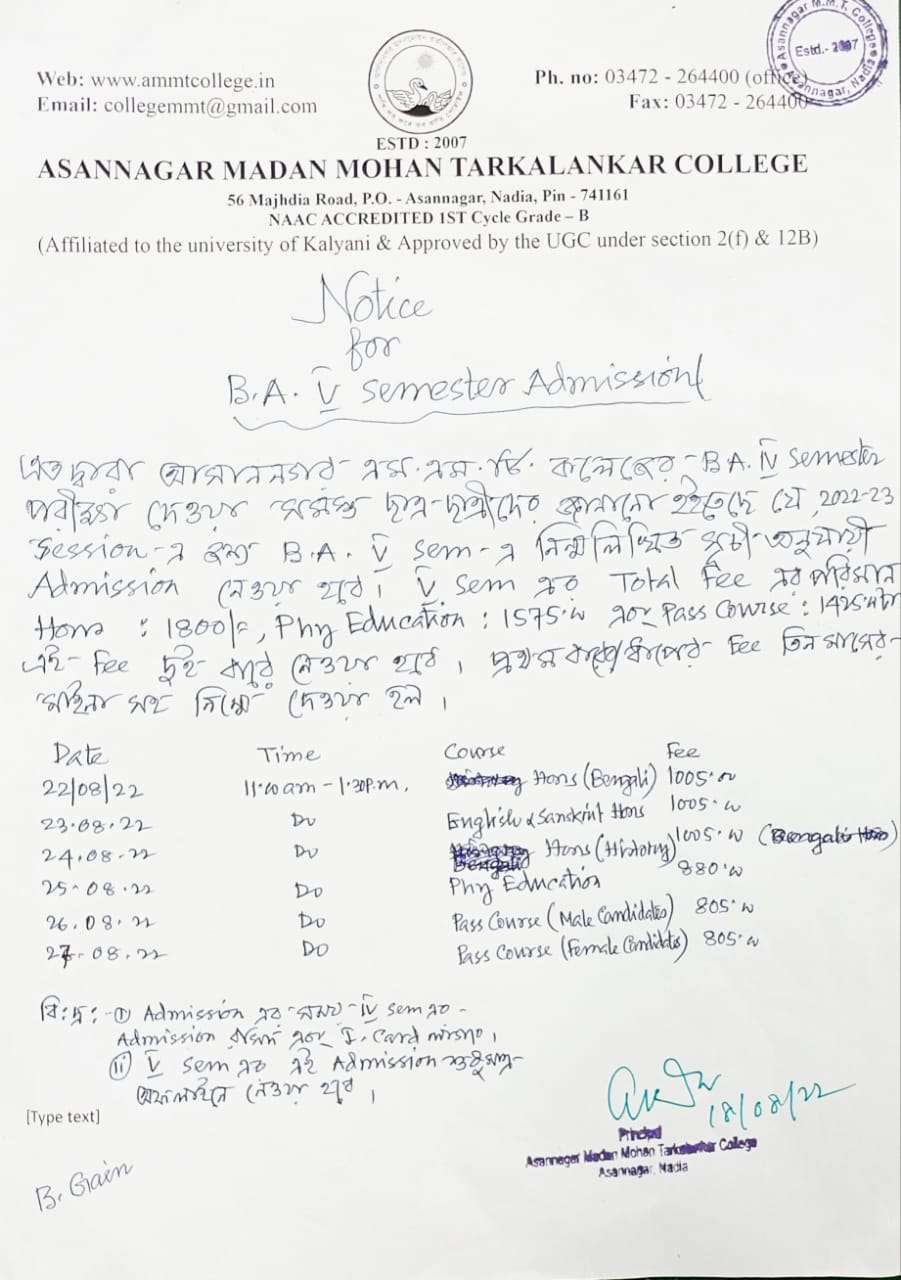 Web: www.ammtcollege.in
Email: collegemmt@gmail.com
Ph. no: 03472 - 264400 (office)
Fax: 03472 - 264400
Asannagar M.M.T. College
Estd.- 2007
Asannagar, Nadia
ESTD : 2007
ASANNAGAR MADAN MOHAN TARKALANKAR COLLEGE
56 Majhdia Road, P.O. - Asannagar, Nadia, Pin - 741161
NAAC ACCREDITED 1ST Cycle Grade – B
(Affiliated to the university of Kalyani & Approved by the UGC under section 2(f) & 12B)
Notice
for
B.A. V Semester Admission
এত দ্বারা আসাননগর এম.এম.টি. কলেজের B.A. IV Semester
পরীক্ষা দেওয়া সমস্ত ছাত্র-ছাত্রীদের জানানো হইতেছে যে, 2022-23
Session-এ জন্য B.A. V Sem-এ নিম্নলিখিত সূচী অনুযায়ী
Admission নেওয়া হবে। V Sem এর Total Fee এর পরিমান
Hons : 1800/=, Phy Education : 1575.00 এবং Pass Course : 1425.00
এই Fee দুই বারে নেওয়া হবে। প্রথম ধাপের Fee তিন মাসের
মাহিনা সহ নিম্নে দেওয়া হল।
Date Time Course Fee
22/08/22 11.00 am - 1.30 P.m. Hons (Bengali) 1005.00
23.08.22 Do English & Sanskrit Hons 1005.00
24.08.22 Do Hons (History) 1005.00 (Bengali Hons)
25.08.22 Do Phy Education 880.00
26.08.22 Do Pass Course (Male Candidates) 805.00
27.08.22 Do Pass Course (Female Candidates) 805.00
বি:দ্র: - (i) Admission এর সময় IV Sem এর
Admission রসিদ এবং I. Card লাগবে।
(ii) V Sem এর এই Admission শুধুমাত্র
অফলাইনে নেওয়া হবে।
[Type text]
18/08/22
Principal
Asannagar Madan Mohan Tarkalankar College
Asannagar, Nadia
B. Gain